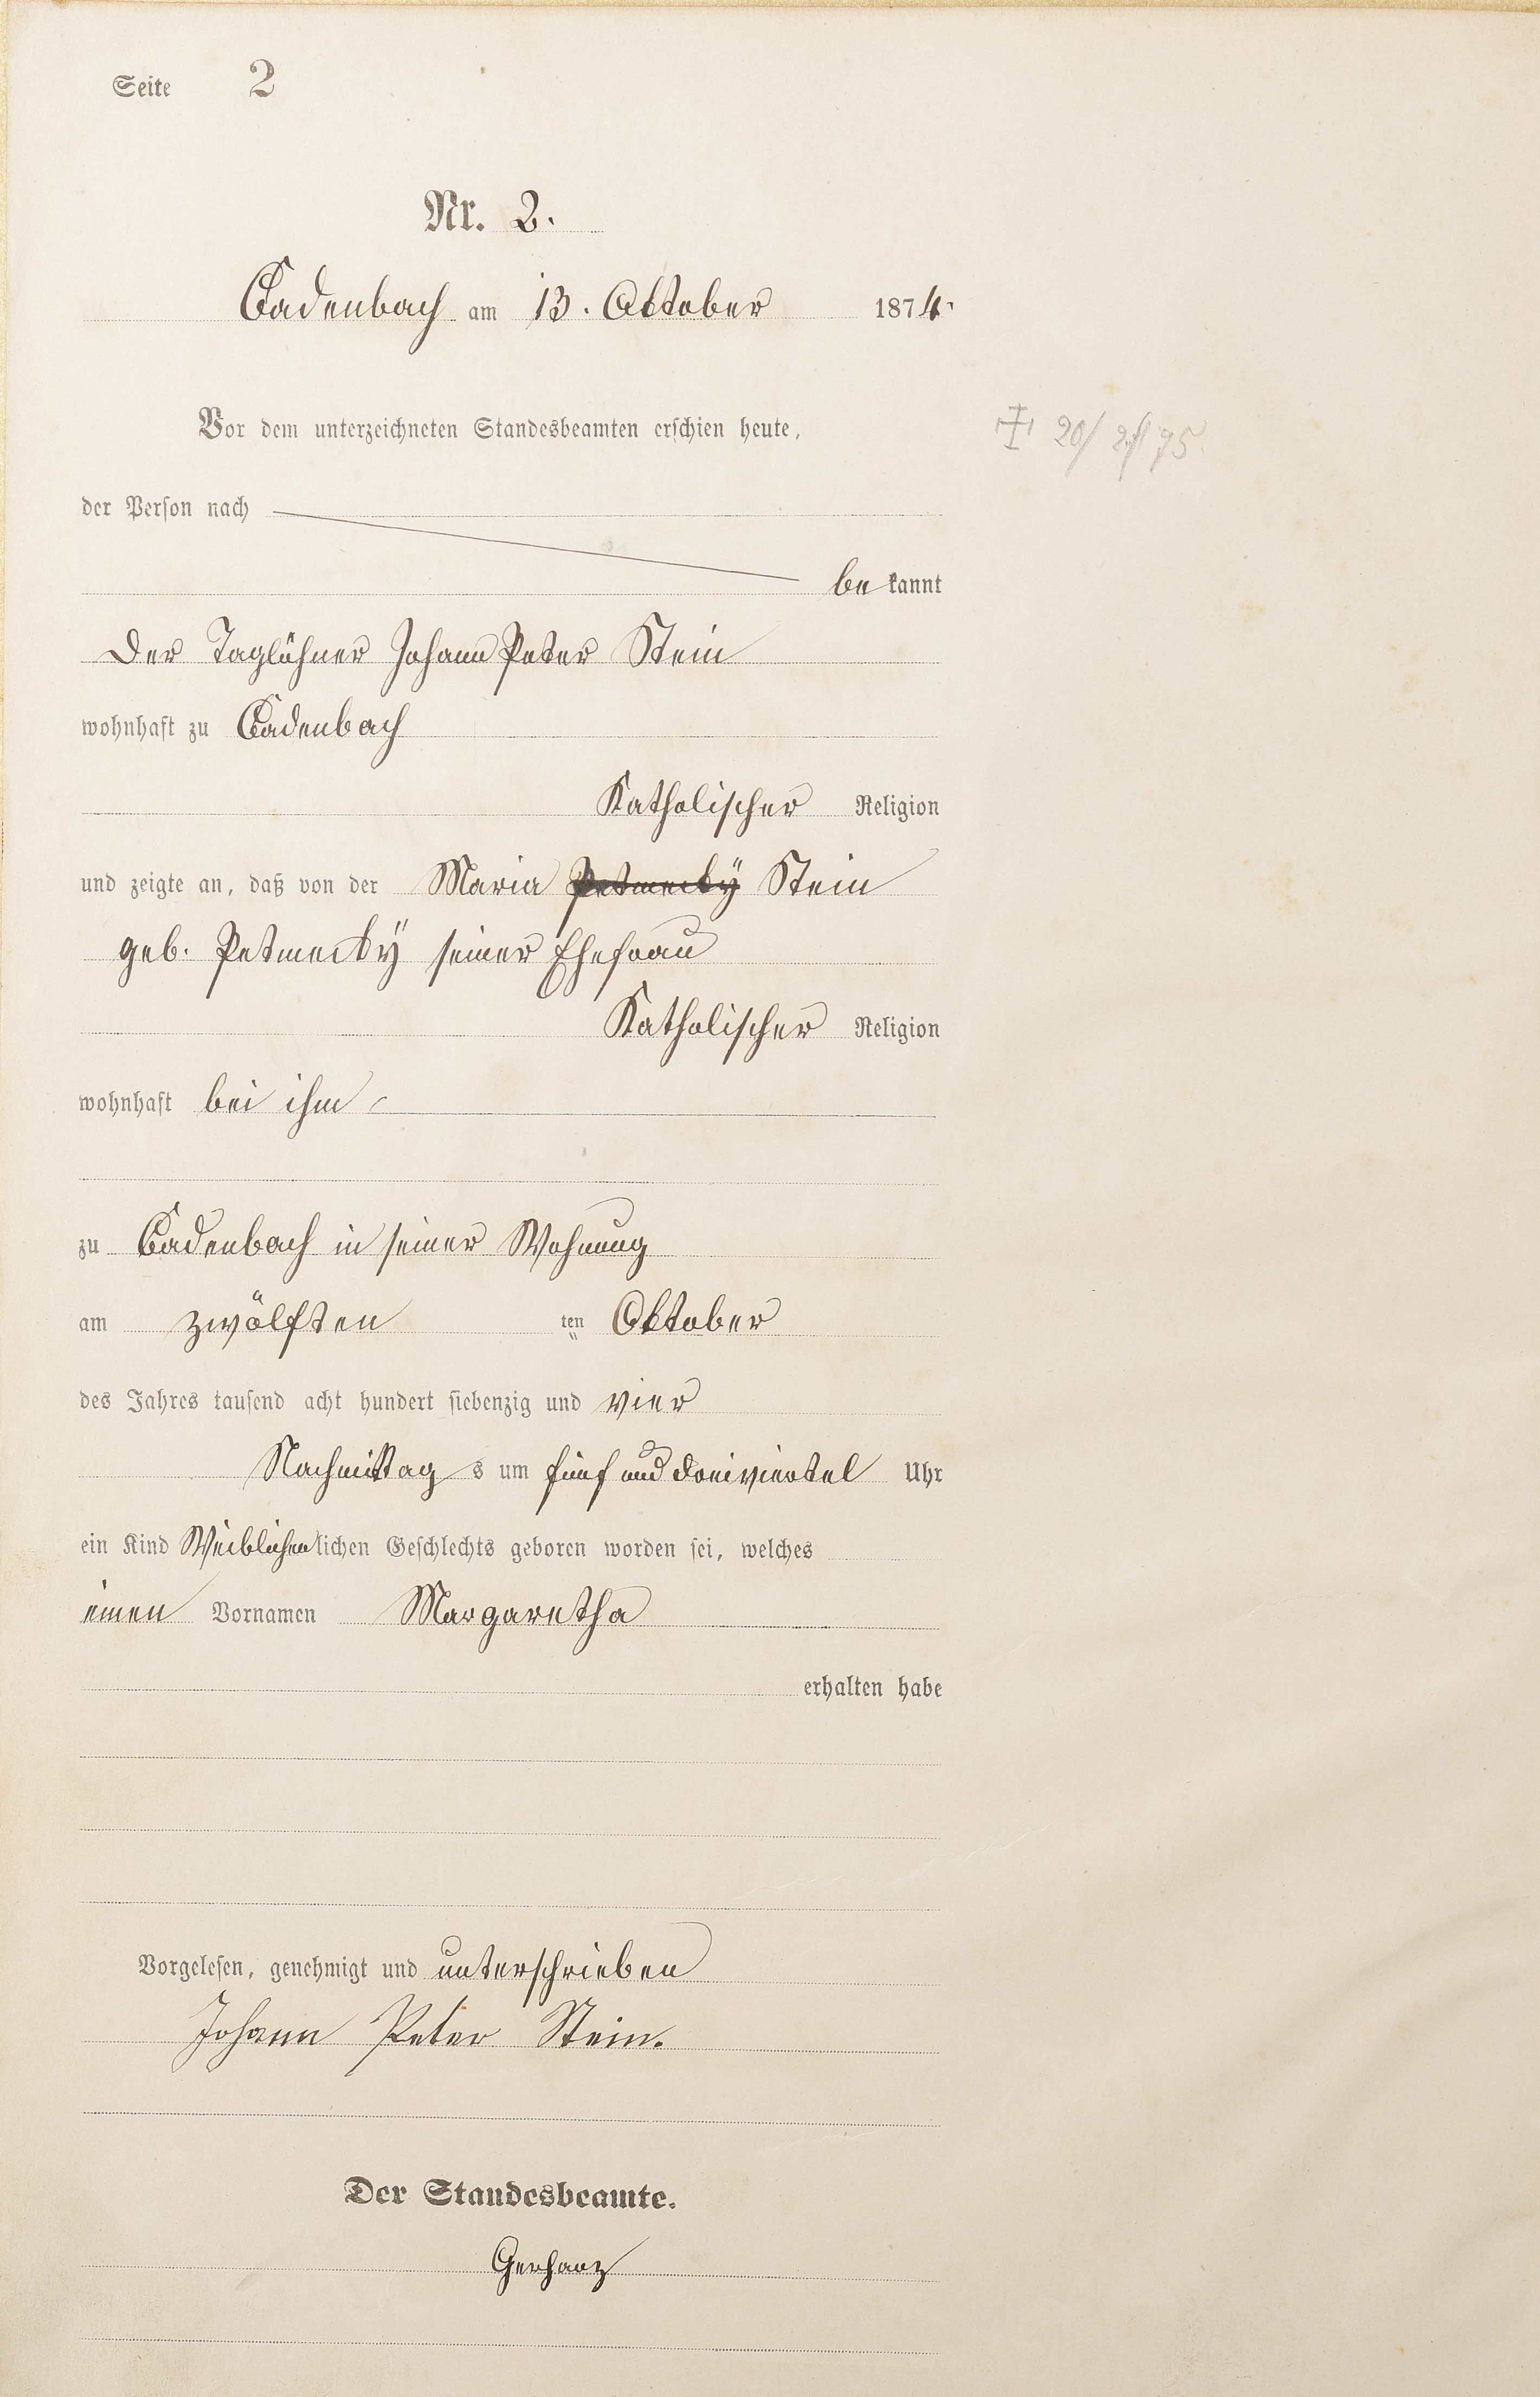 Seite 2
Nr. 2.
Cadenbach am 13. Oktober 1874.
Vor dem unterzeichneten Standesbeamten erschien heute,
† 20/2/75.
der Person nach
bekannt
Der Taglöhner Johann Peter Stein
wohnhaft zu Cadenbach
Katholischer Religion
und zeigte an, daß von der Maria Petmecky Stein
geb. Petmecky seiner Ehefrau
Katholischer Religion
wohnhaft bei ihm
zu Cadenbach in seiner Wohnung
am zwölften ten Oktober
des Jahres tausend acht hundert siebenzig und vier
Nachmittag s um fünf und dreiviertel Uhr
ein Kind Weiblichen lichen Geschlechts geboren worden sei, welches
einen Vornamen Margaretha
erhalten habe
Vorgelesen, genehmigt und unterschrieben
Johann Peter Stein.
Der Standesbeamte.
Gerharz